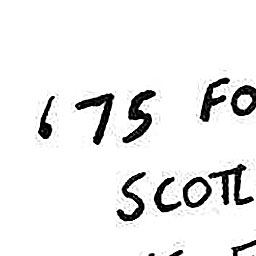 675 FO
SCOTL